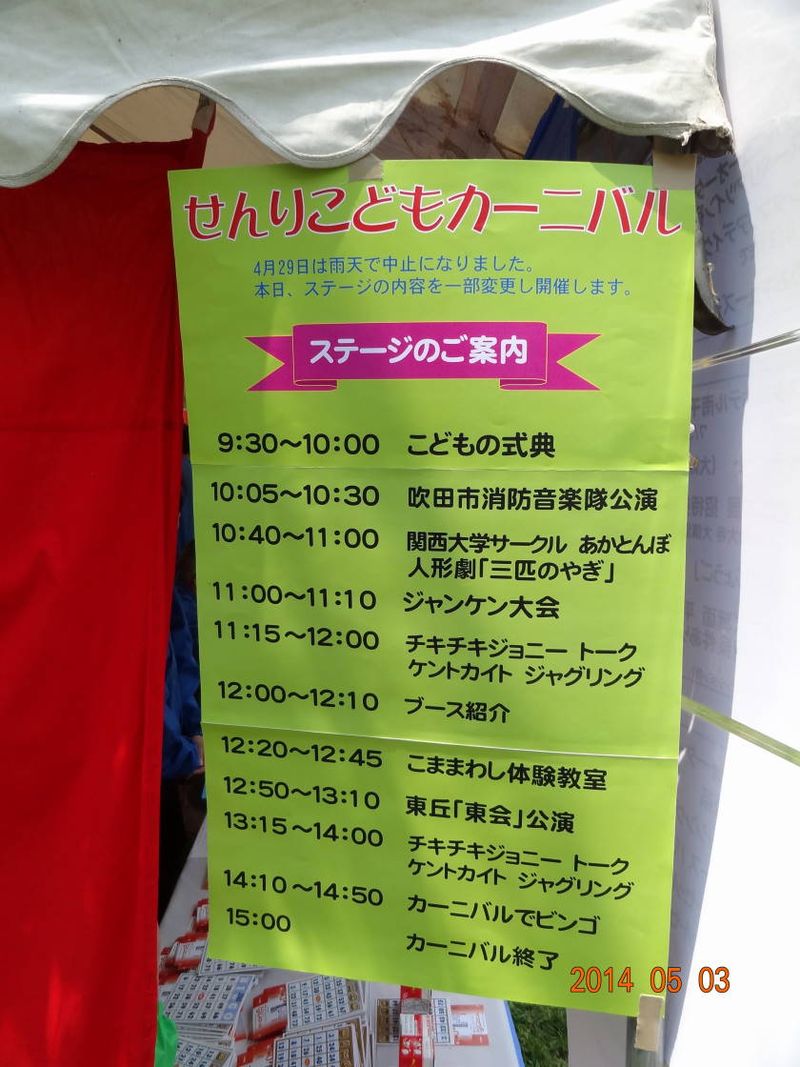 せんりこどもカーニバル
4月29日は雨天で中止になりました。
本日、ステージの内容を一部変更し開催します。
ステージのご案内
9:30～10:00 こどもの式典
10:05～10:30 吹田市消防音楽隊公演
10:40～11:00 関西大学サークル あかとんぼ
人形劇「三匹のやぎ」
11:00～11:10 ジャンケン大会
11:15～12:00 チキチキジョニー トーク
ケントカイト ジャグリング
12:00～12:10 ブース紹介
12:20～12:45 こままわし体験教室
12:50～13:10 東丘「東会」公演
13:15～14:00 チキチキジョニー トーク
ケントカイト ジャグリング
14:10～14:50 カーニバルでビンゴ
15:00 カーニバル終了
2014 05 03